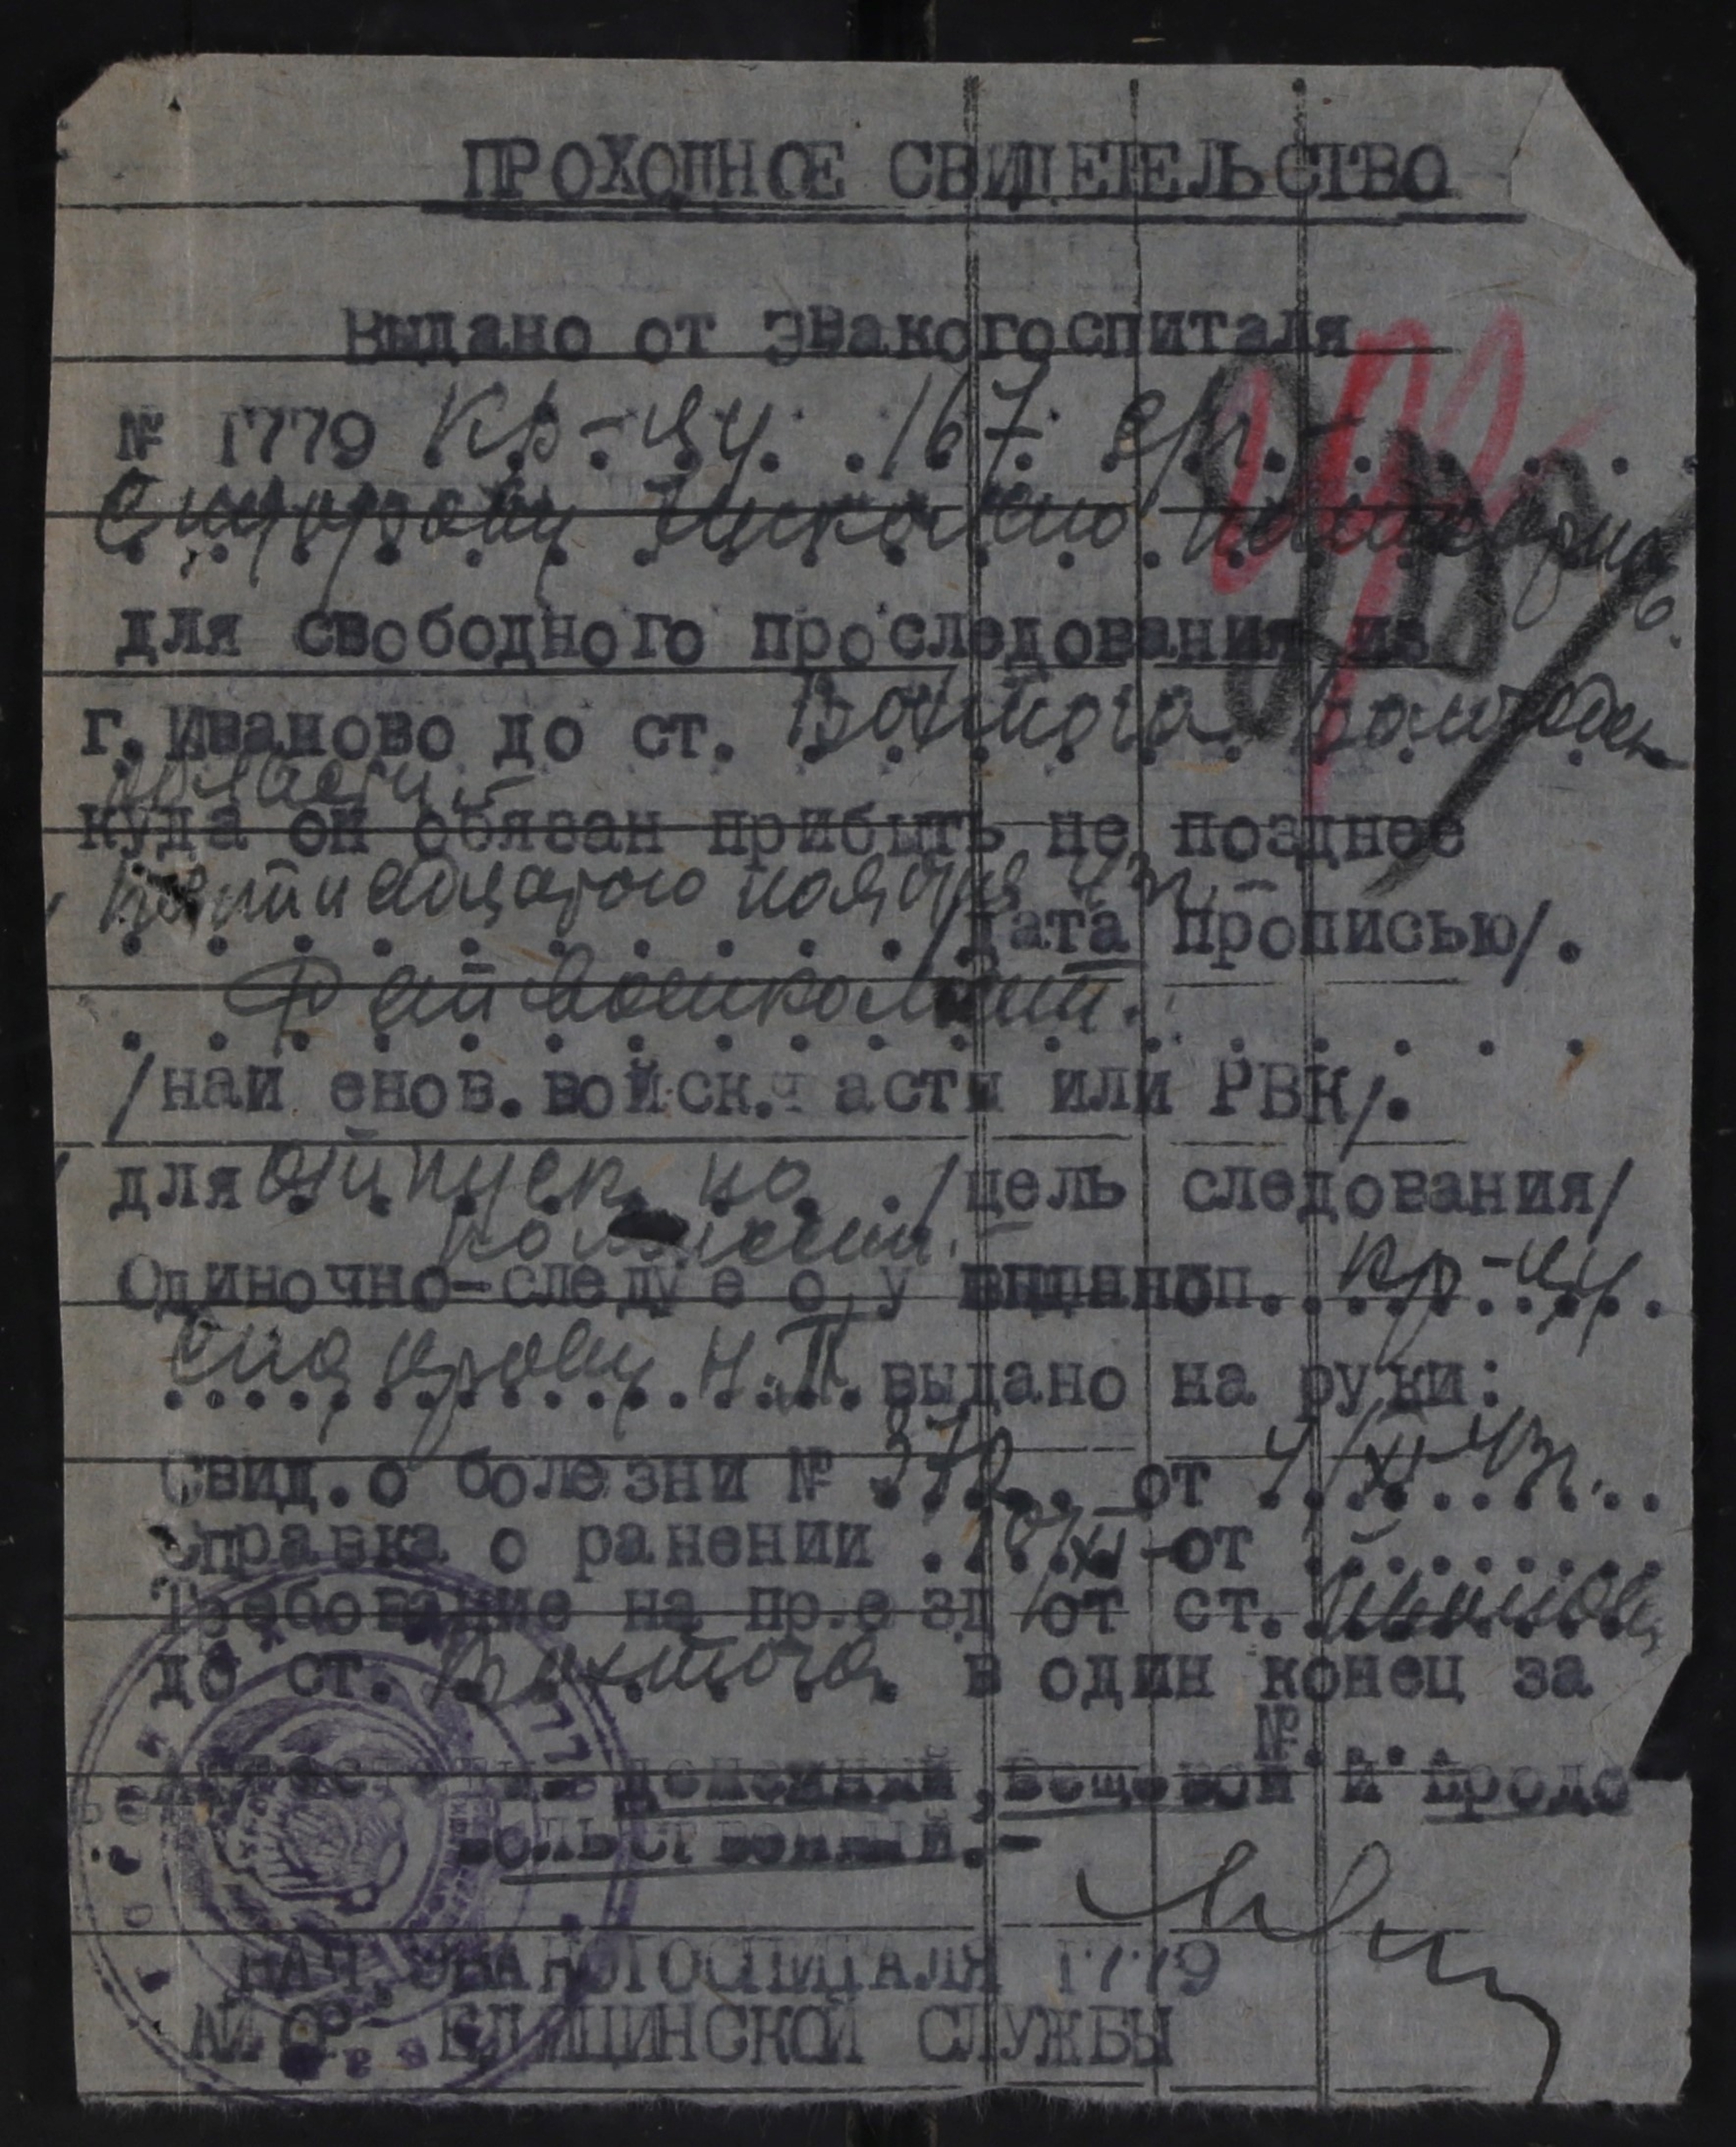 ПРОХОДНОЕ СВИДЕТЕЛЬСТВО
Выдано от Эвакогоспиталя
№ 1779 кр-цу 167 сп.
Сидорову Николаю
для свободного проследования из
г. Иваново до ст. Вохтога Вологодск
области.-
куда он обязан прибыть не позднее
пятнадцатого ноября 43г.-
/дата прописью/.
Райвоенкомат.
/наи енов.войск.части или РВК/.
для отпуск по /цель следования/
болезни.-
Одиночно-следуе о у выдано кр-цу
Сидорову Н.П. выдано на руки:
Свид.о болезни № от 4/XI-43г.
Справка о ранении от
Требование на пр.езд от ст. Иваново
до ст. Вохтога в один конец за
№
денежный, вещевой и продо
вольственный.-
НАЧ.ЭВАКОГОСПИТАЛЯ 1779
ЕДИЦИНСКОЙ СЛУЖБЫ